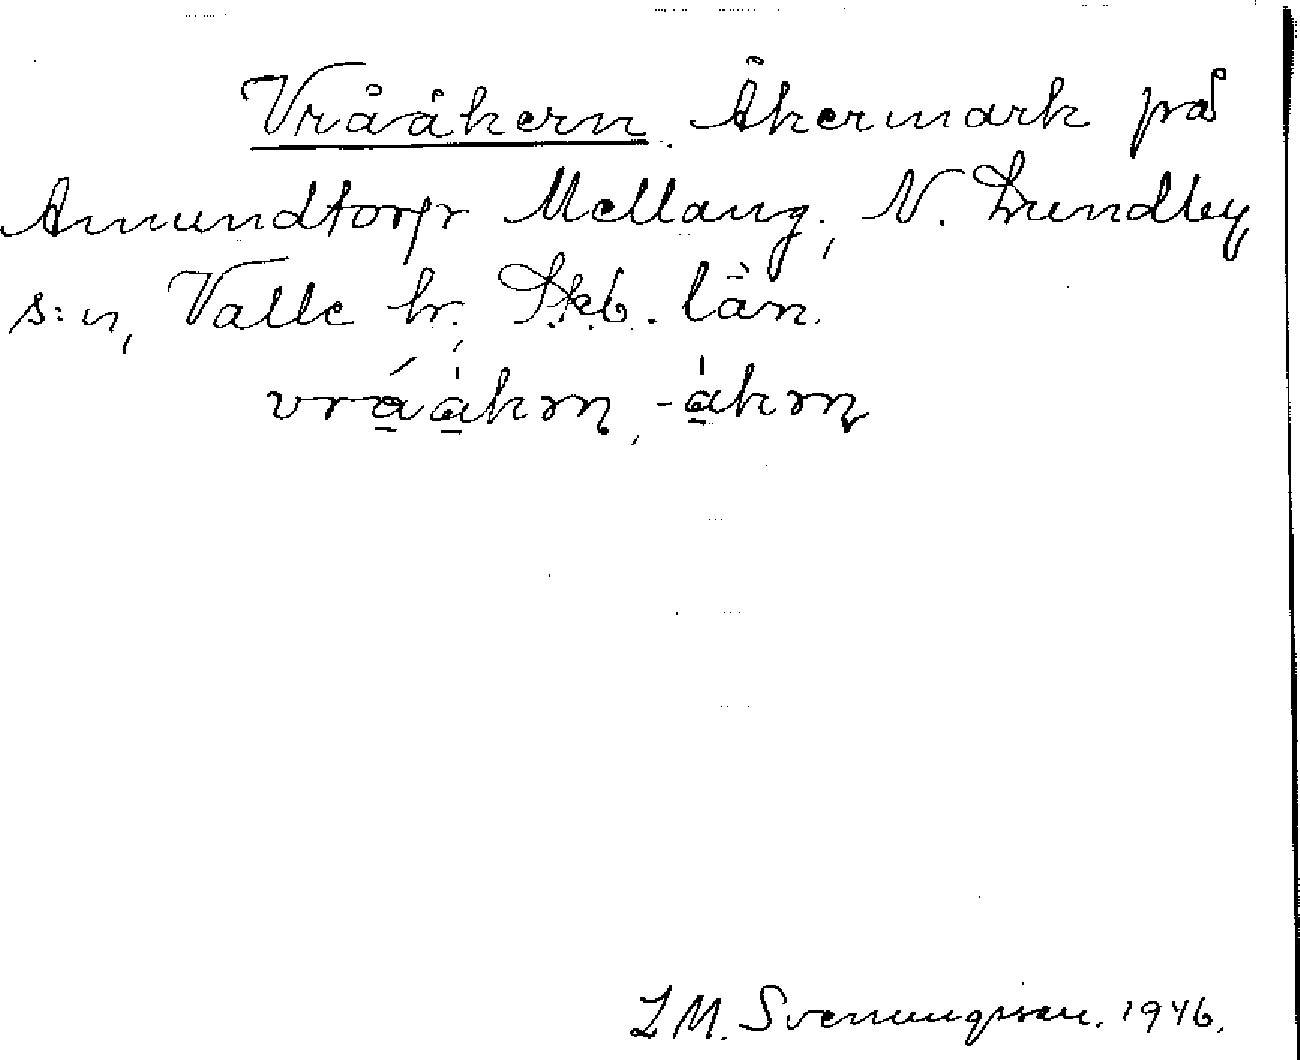 Vrååkern. Åkermark på
Amundtorp Mellang., N. Lundby
s:n, Valle hr, Skb. län.
vrá̱a̱̍krn̥, -a̱̍krn̥
L M. Svenungsson. 1946.